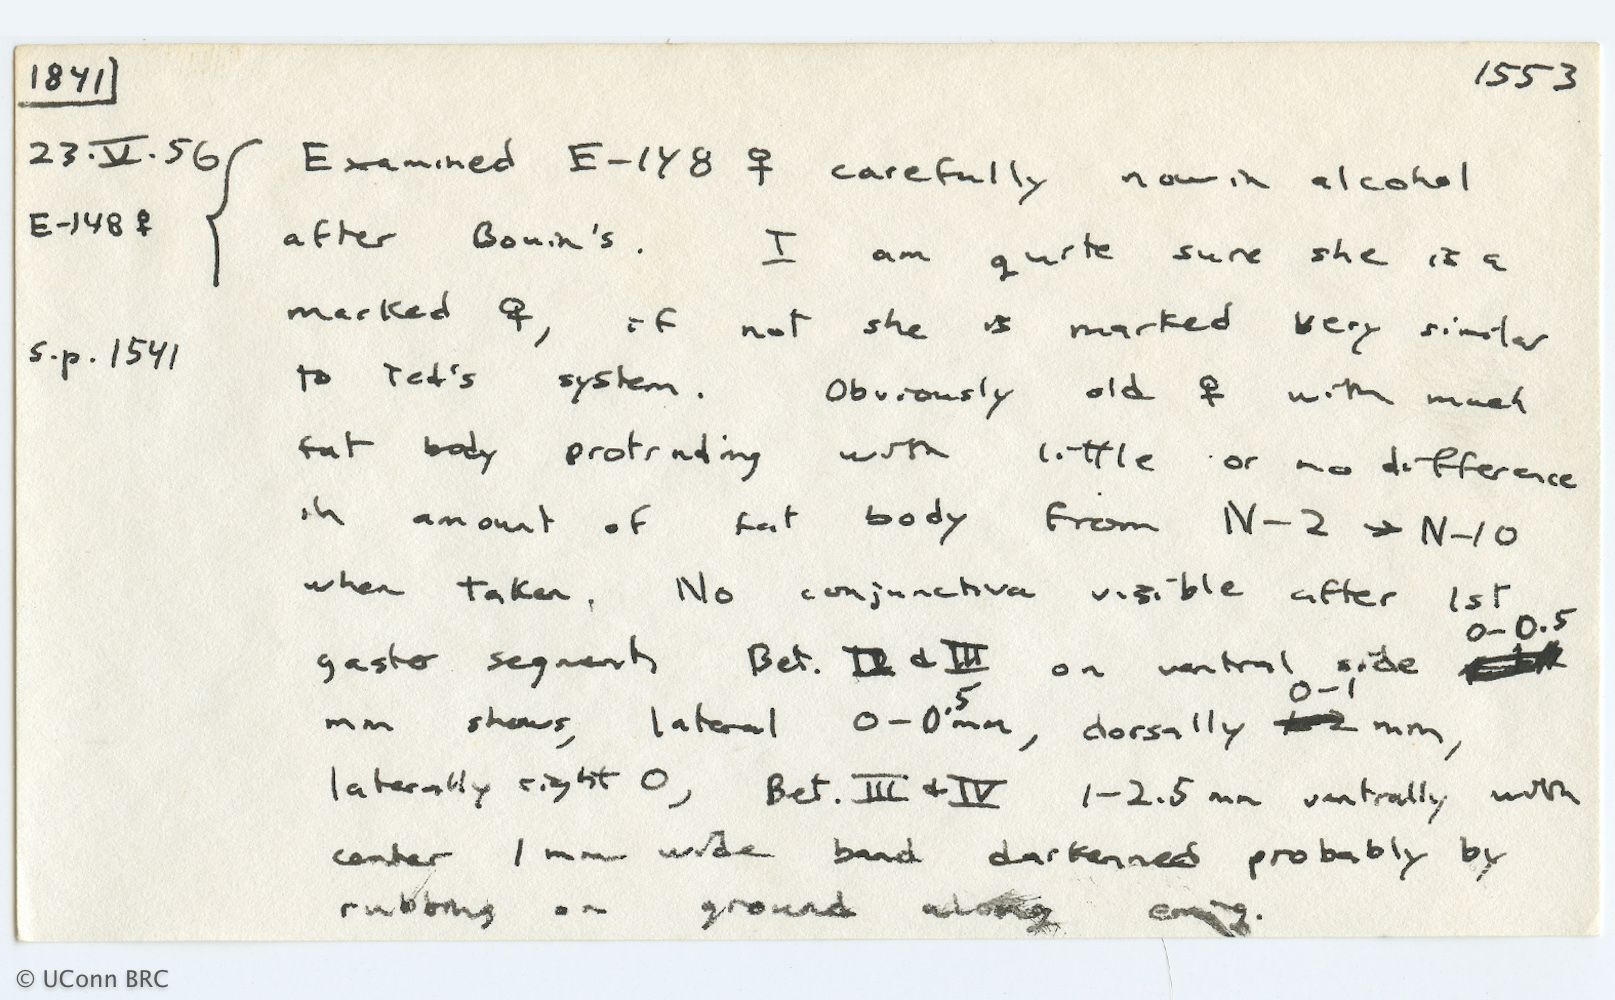 1841
1553
23.V.56
E-148 ♀
s.p. 1541
Examined E-148 ♀ carefully now in alcohol
after Bouin's. I am quite sure she is a
marked ♀, if not she is marked very similar
to Ted's system. Obviously old ♀ with much
fat body protruding with little or no difference
in amount of fat body from N-2 → N-10
when taken. No conjunctiva visible after 1st
gaster segment Bet. II & III on ventral side 0-0.5
mm shows, lateral 0-0.5 mm, dorsally 0-1 mm,
laterally right 0, Bet. III & IV 1-2.5 mm ventrally with
center 1 mm wide band darkenned probably by
rubbing on ground along
© UConn BRC